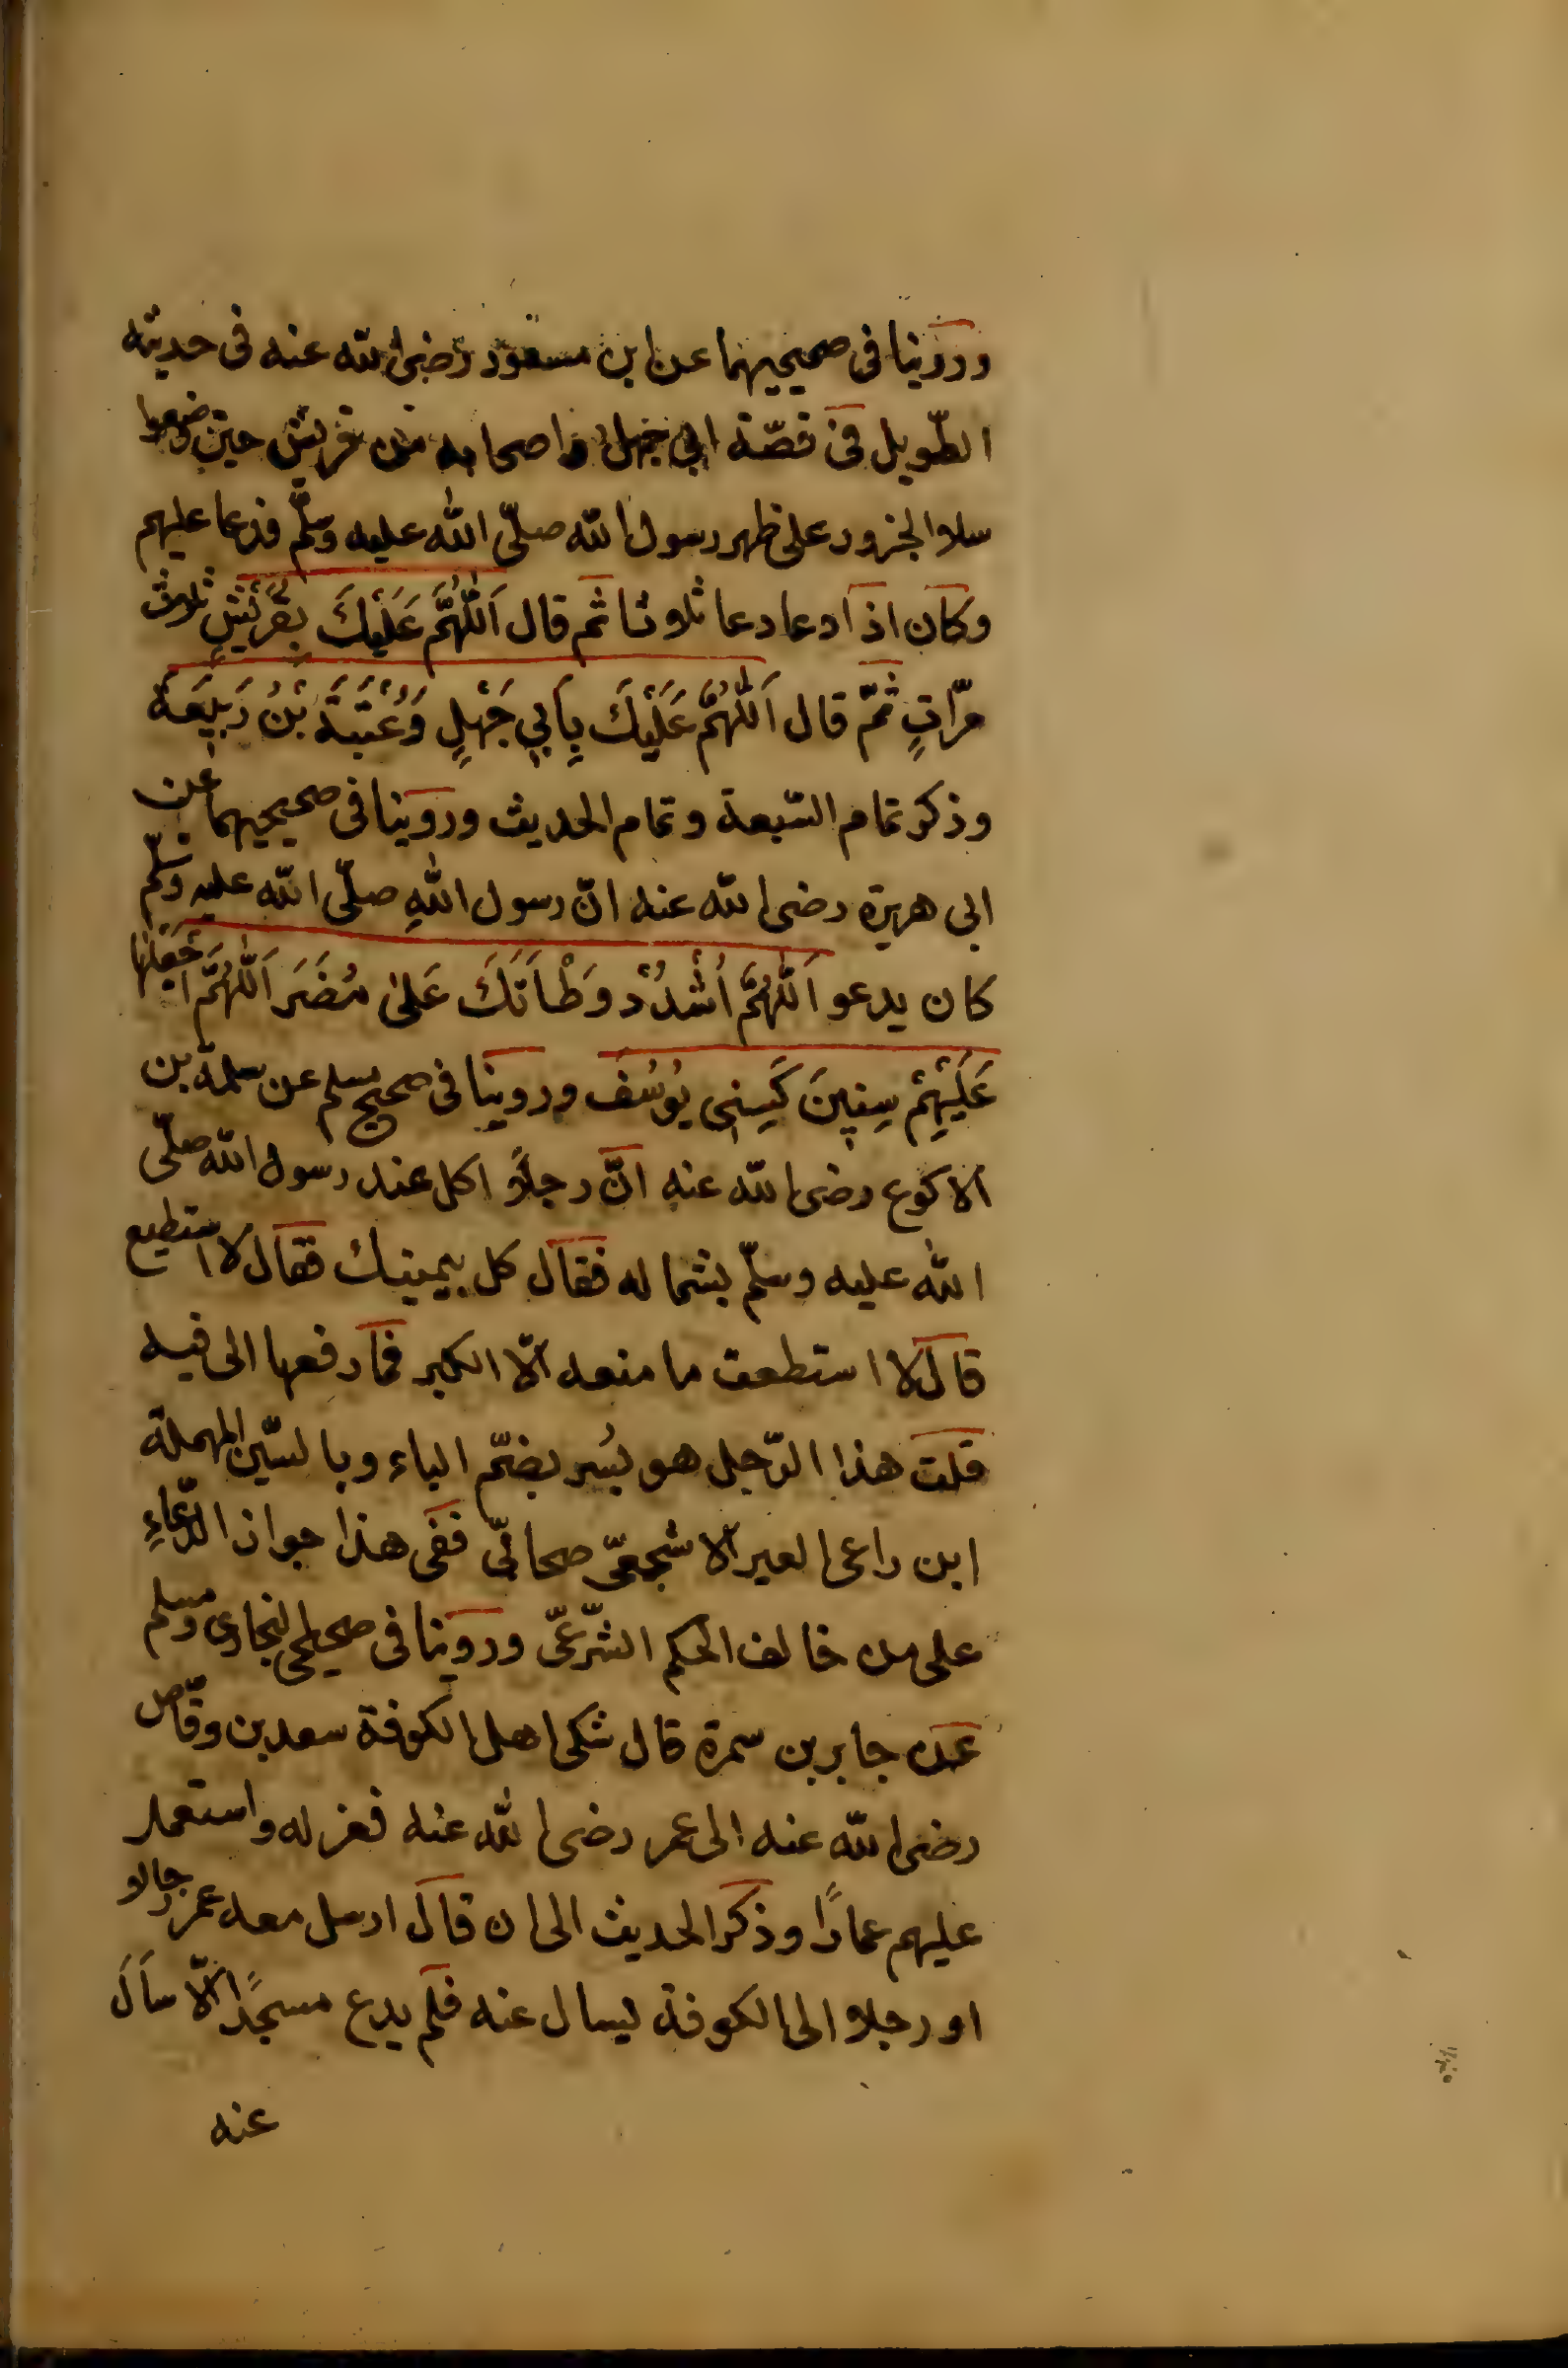 وروينا فى صحيحيهما عن ابن مسعود رضى الله عنه فى حديثه
الطّويل فى قصّة ابى جهل واصحابه من قريش حين وضعوا
سلا الجزور على ظهر رسول الله صلّى الله عليه وسلّم فدعا عليهم
وكان اذا دعا دعا ثلاثا ثم قال اَللّٰهُمَّ عَلَيْكَ بِقُرَيْشٍ ثلاث
مرّاتٍ ثمّ قال اَللّٰهُمَّ عَلَيْكَ بِاَبِي جَهْلٍ وَعُتْبَةَ بْنُ رَبِيَعَةَ
وذكر تمام السّبعة وتمام الحديث وروينا فى صحيحيهما عن
ابى هريرة رضى الله عنه انّ رسول اللهِ صلّى الله عليه وسلّم
كان يدعو اَللّٰهُمَّ اُشْدُدْ وَطْاَتَكَ عَلىٰ مُضَرَ اَللّٰهُمَّ اجْعَلْهَا
عَلَيْهِمْ سِنِينَ كَسِنِى يُوسُفَ وروينا فى صحيح مسلم عن سلمة بن
الاكوع رضى الله عنه انّ رجلاً اكل عند رسول الله صلّى
الله عليه وسلّم بشماله فقال كل بيمينك فقال لا استطيع
قال لا استطعت ما منعه الّا الكبر فما رفعها الى فيه
قلت هذا الرّجل هو بُسر بضمّ الباء وبالسّين المهملة
ابن راعى العير الاشجعىّ صحابىّ ففى هذا جواز الدّعاءِ
على من خالف الحكم الشّرعىّ وروينا فى صحيحى البخارى ومسلم
عن جابر بن سمرة قال شكى اهل الكوفة سعد بن وقّاص
رضى الله عنه الى عمر رضى الله عنه فعزله واستعمل
عليهم عمارًا وذكر الحديث الى ان قال ارسل معه عمر رجالا
او رجلا الى الكوفة ليسال عنه فلم يدع مسجدًا الّا سَاَلَ
عنه